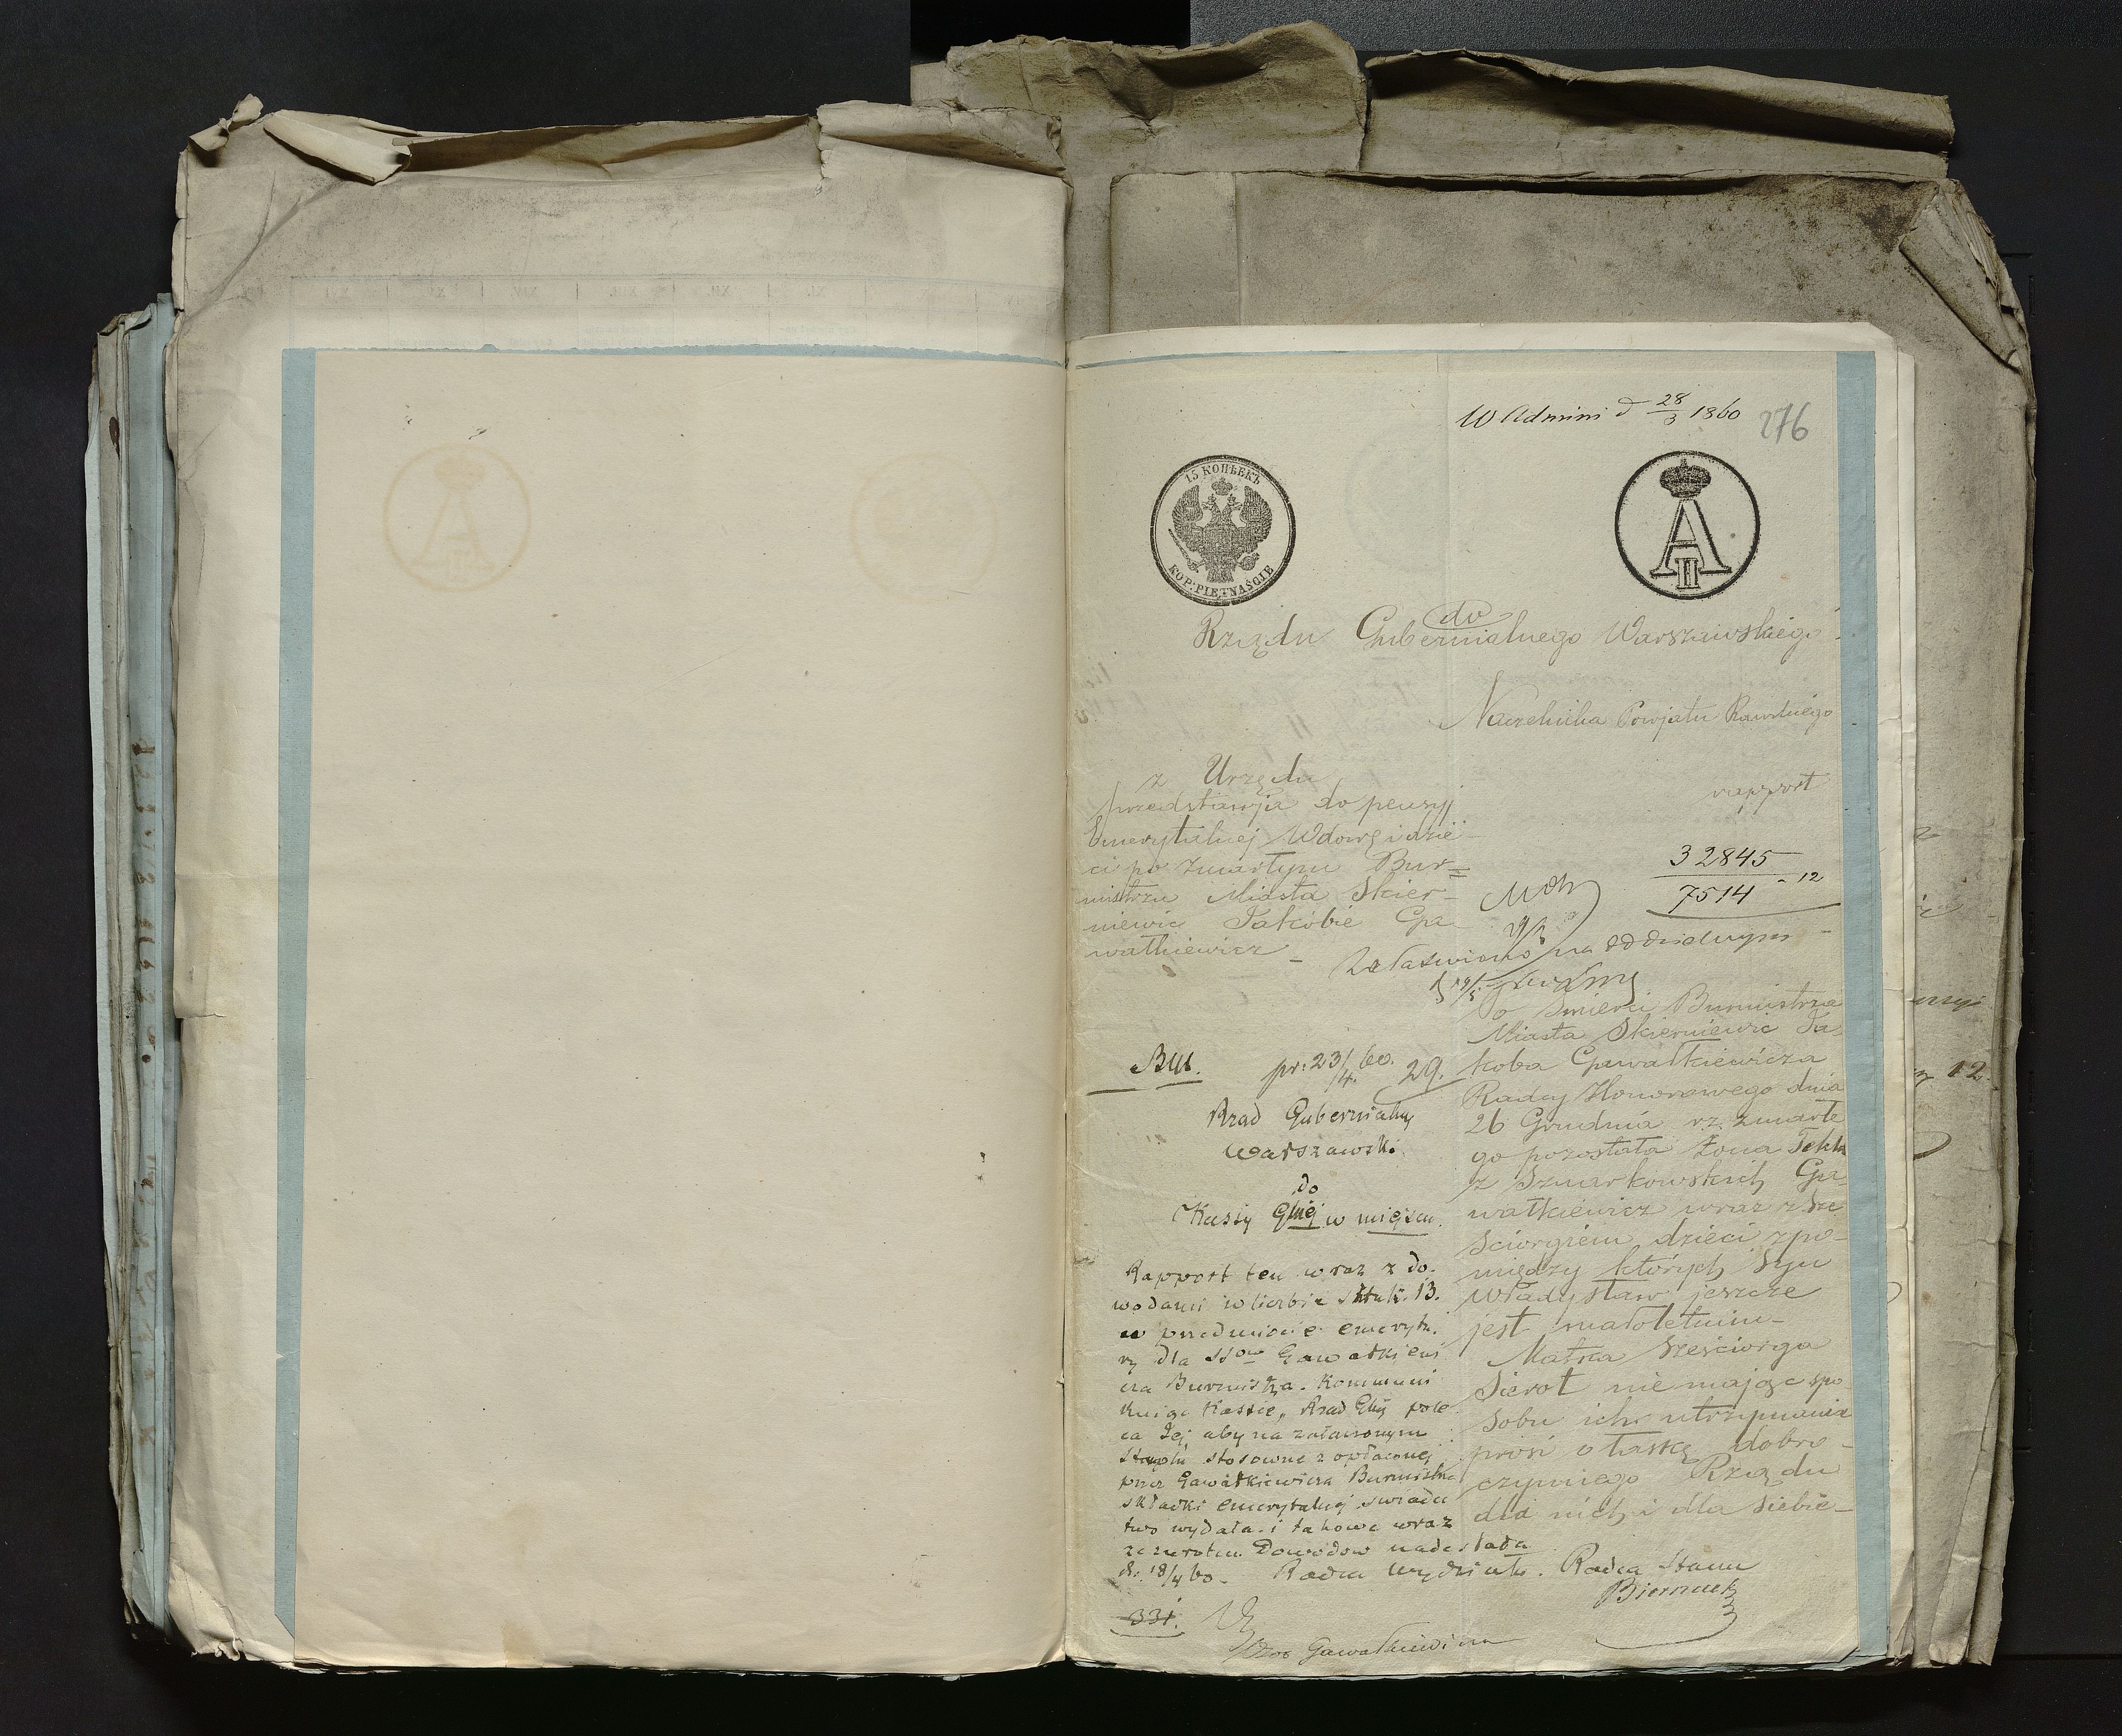 W Admini d 28/3 1860
276
15 КОПѢЕКЪ
KOP. PIĘTNAŚCIE
A II
do
Rządu Gubernialnego Warszawskiego
Naczelnika Powjatu Rawskiego
rapport
z Urzędu
przedstawja do pensyj
Emerytalnej Wdowę i dzie-
ci po zmarłym Bur=
mistrzu Miasta Skier-
niewic Jakóbie Ga
wałkiewicz -
32845
7514 - 12
Załatwiono na oddzielnym
o Śmierci Burmistrza
Miasta Skierniewic Ja
koba Gawałkiewicza
Radcy Honorowego dnia
26 Grudnia rz zmarłe
go pozostała Żona Tekla
z Szmarkowskich Ga-
wałkiewicz wraz z Sze
ściorgiem dzieci zpo-
między których Syn
Władysław jeszcze
jest małoletnim -
Matka Sześciorga
Sierot nie mając spo
sobu ich utrzymania
prosi o łaskę dobro-
czynnego Rządu
dla nich i dla siebie -
pr: 23/4 60. 29.
Rzad Gubernialny
Warszawski
do
Kassy Głnej w miejscu.
Rapport ten wraz z do-
wodami w liczbie sztuk. 13.
w przedmiocie emerytu.
ry dla SSów Gawałkiewi
cza Burmistrza. Kommuni
kując Kassie, Rzad Glny pole
ca Jej, aby na załaczonym
Stemplu stosowne z opłaconej
przez Gawałkiewicza Burmistrza
składki emerytalnej swiadec
two wydała i takowe wraz
ze zwrotem Dowodow nadesłała
d. 18/4 60 - Radca Wydziału. Radca Stanu
Biernacki
331.
Gawałkiewicza
12